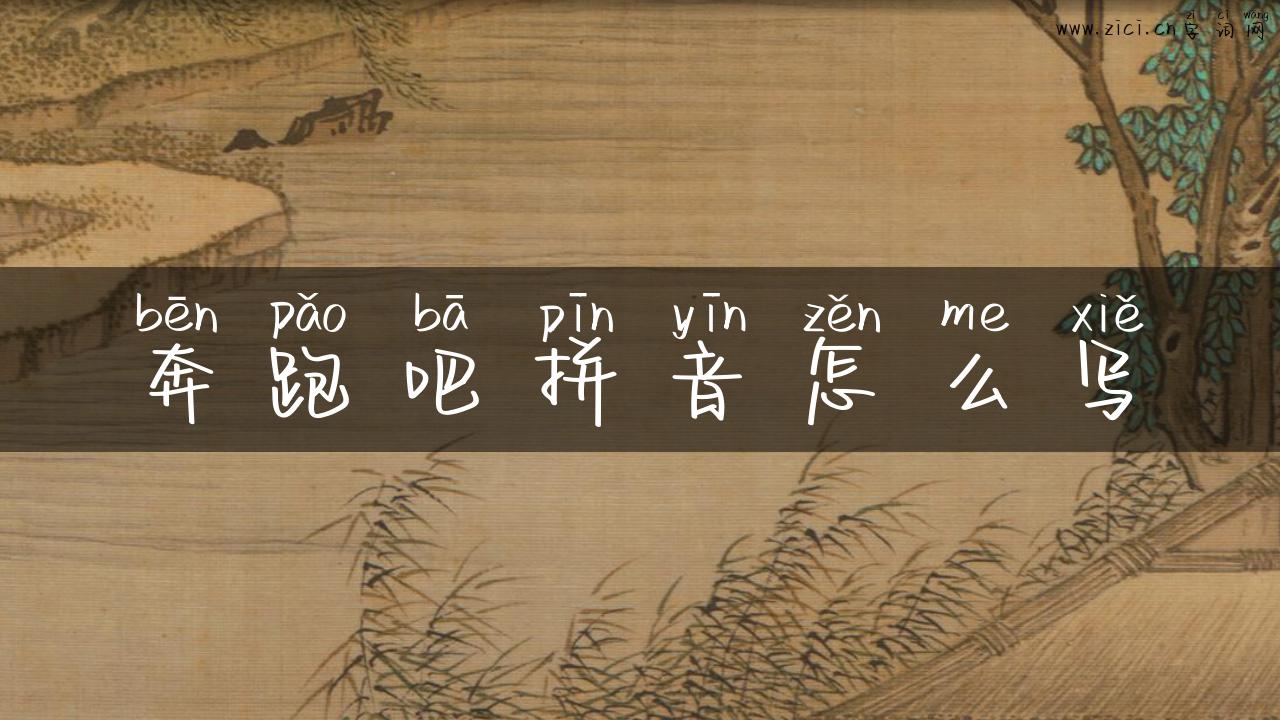 zì cí wǎng
www.zici.cn字词网
bēn pǎo bā pīn yīn zěn me xiě
奔跑吧拼音怎么写